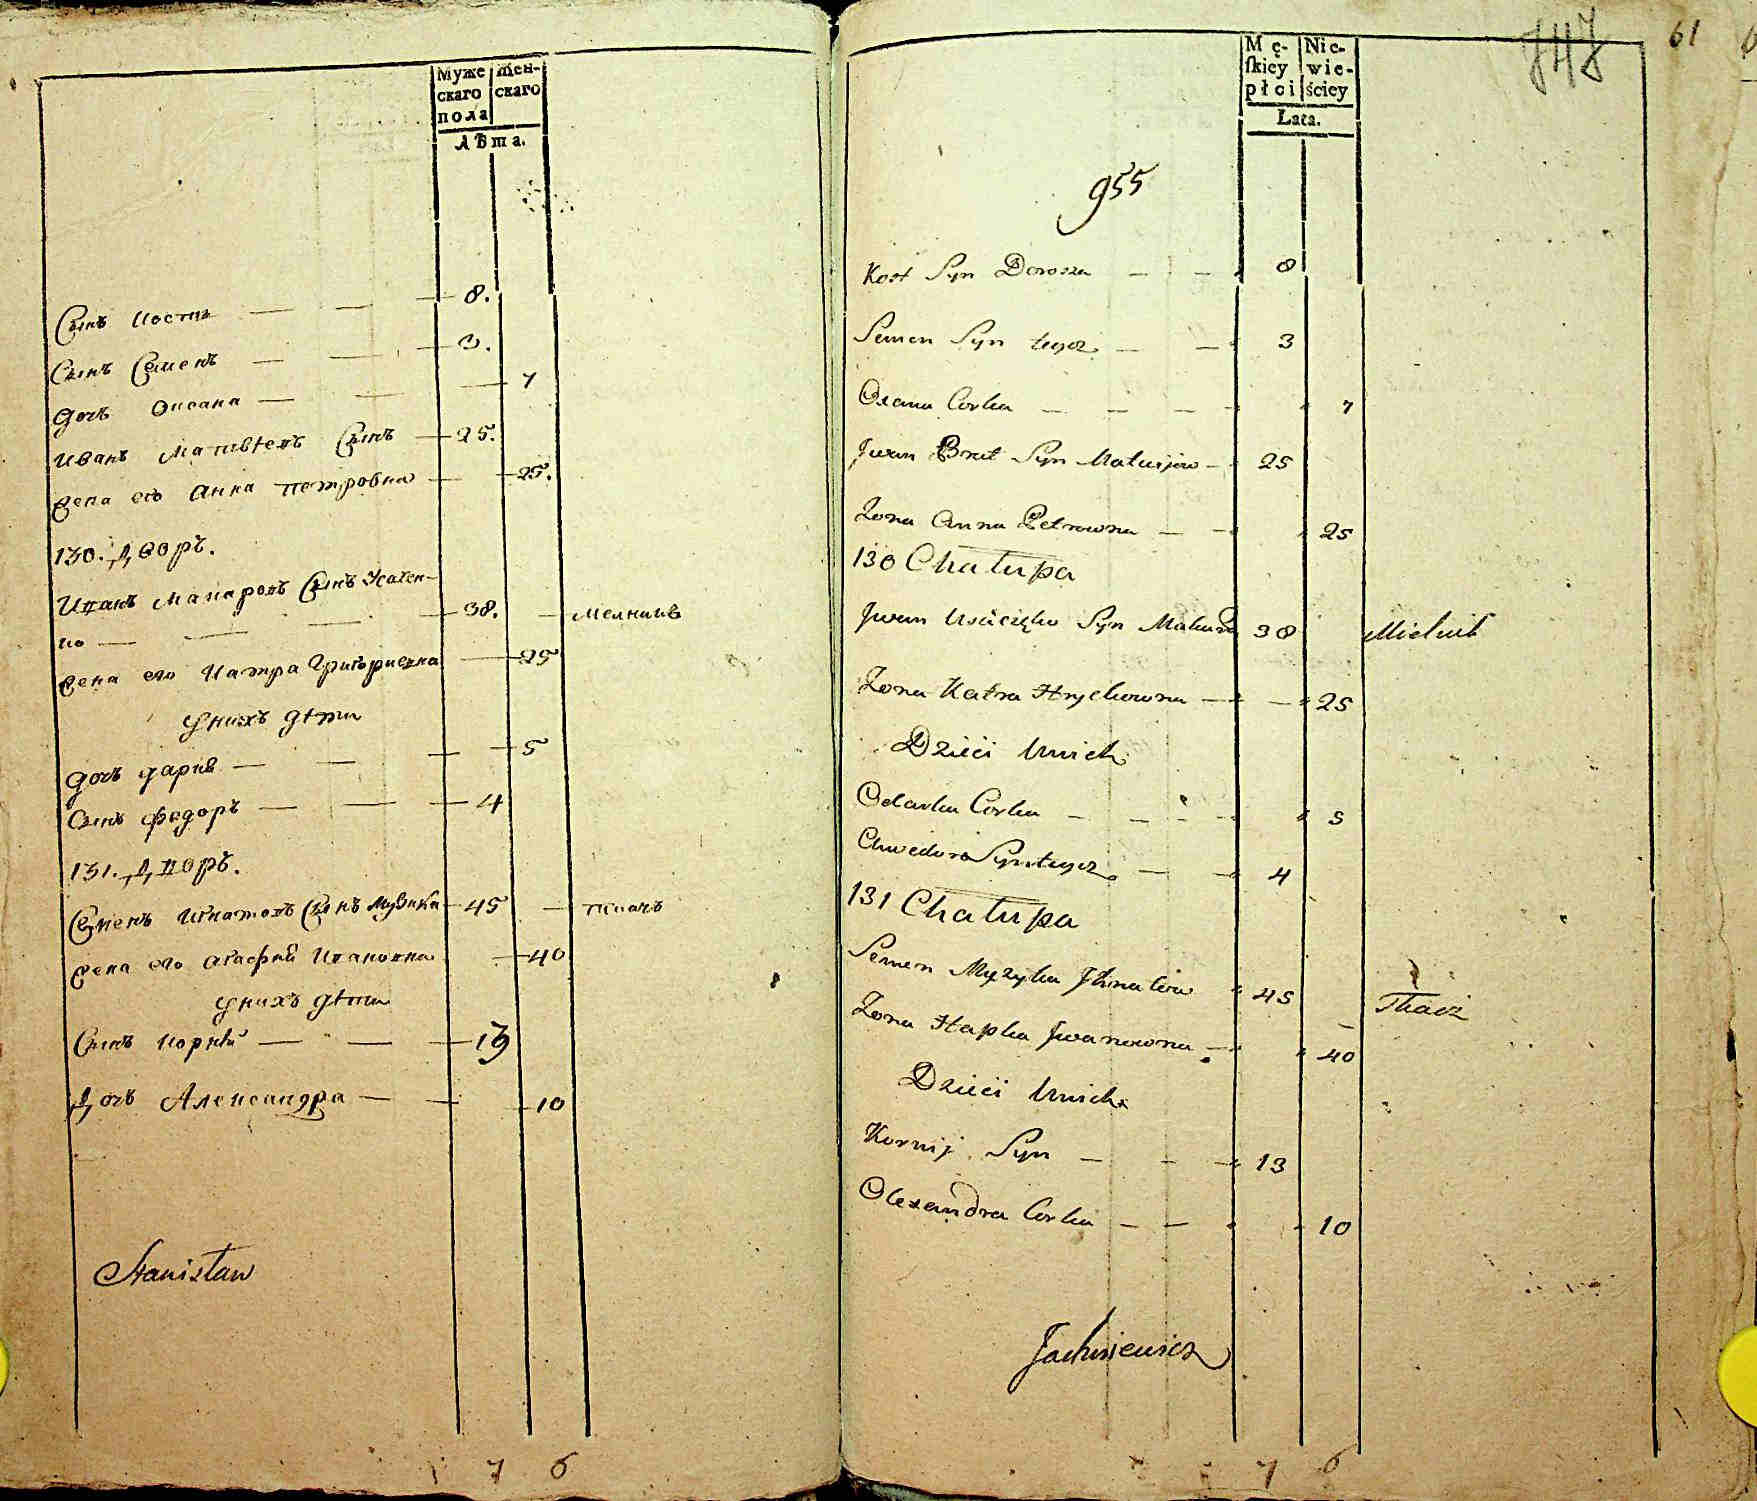 Муже
скаго
пола
Жен-
скаго
лѣта.
Сынъ Костъ — — 8.
Сынъ Семенъ — — 3.
Дочь Оксана — — 7
Иванъ Матвѣевъ Сынъ — 25.
Жена его Анна Петровна — 25.
130. Дворъ.
Иванъ Макаровъ Сынъ Усачен-
ко — — — 38. — мелникъ
Жена его Катра Григориевна — 25
У нихъ дѣти
Дочь — — 5
Сынъ Федоръ — — 4
131. Дворъ.
Семенъ Игнатовъ Сынъ Музика 45 — ткачь
Жена его Агафия Ивановна — 40
У нихъ дѣти
Сынъ Корнѣй — — 13
Дочь Александра — — 10
Stanisław
7 6
61
747
Mę-
skiey
płci
Nie-
wie-
ściey
Lata.
955
Kost Syn Dorosza — — 8
Semen Syn tegoz — — 3
Oxana Corka — — — 7
Jwan Brat Syn Matwijow — 25
Zona Anna Petrowna — — 25
130 Chałupa
Jwan Usaczęko Syn Makara 38 Mielnik
Zona Katra Hrychowna — — 25
Dzieci Unich
Odarka Corka — — — 5
Chwedor Syn tegoz — — 4
131 Chałupa
Semen Myzyka Jhnatow 45 Tkacz
Zona Hapka Jwanowna — 40
Dzieci Unich
Kornij Syn — — — 13
Olexandra Corka — — 10
Jachniewicz
7 6